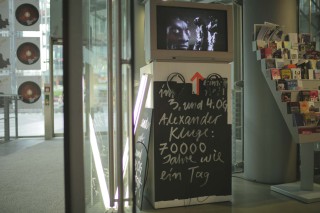 im
3. und 4. OG
Alexander
Kluge:
70000
Jahre wie
ein Tag